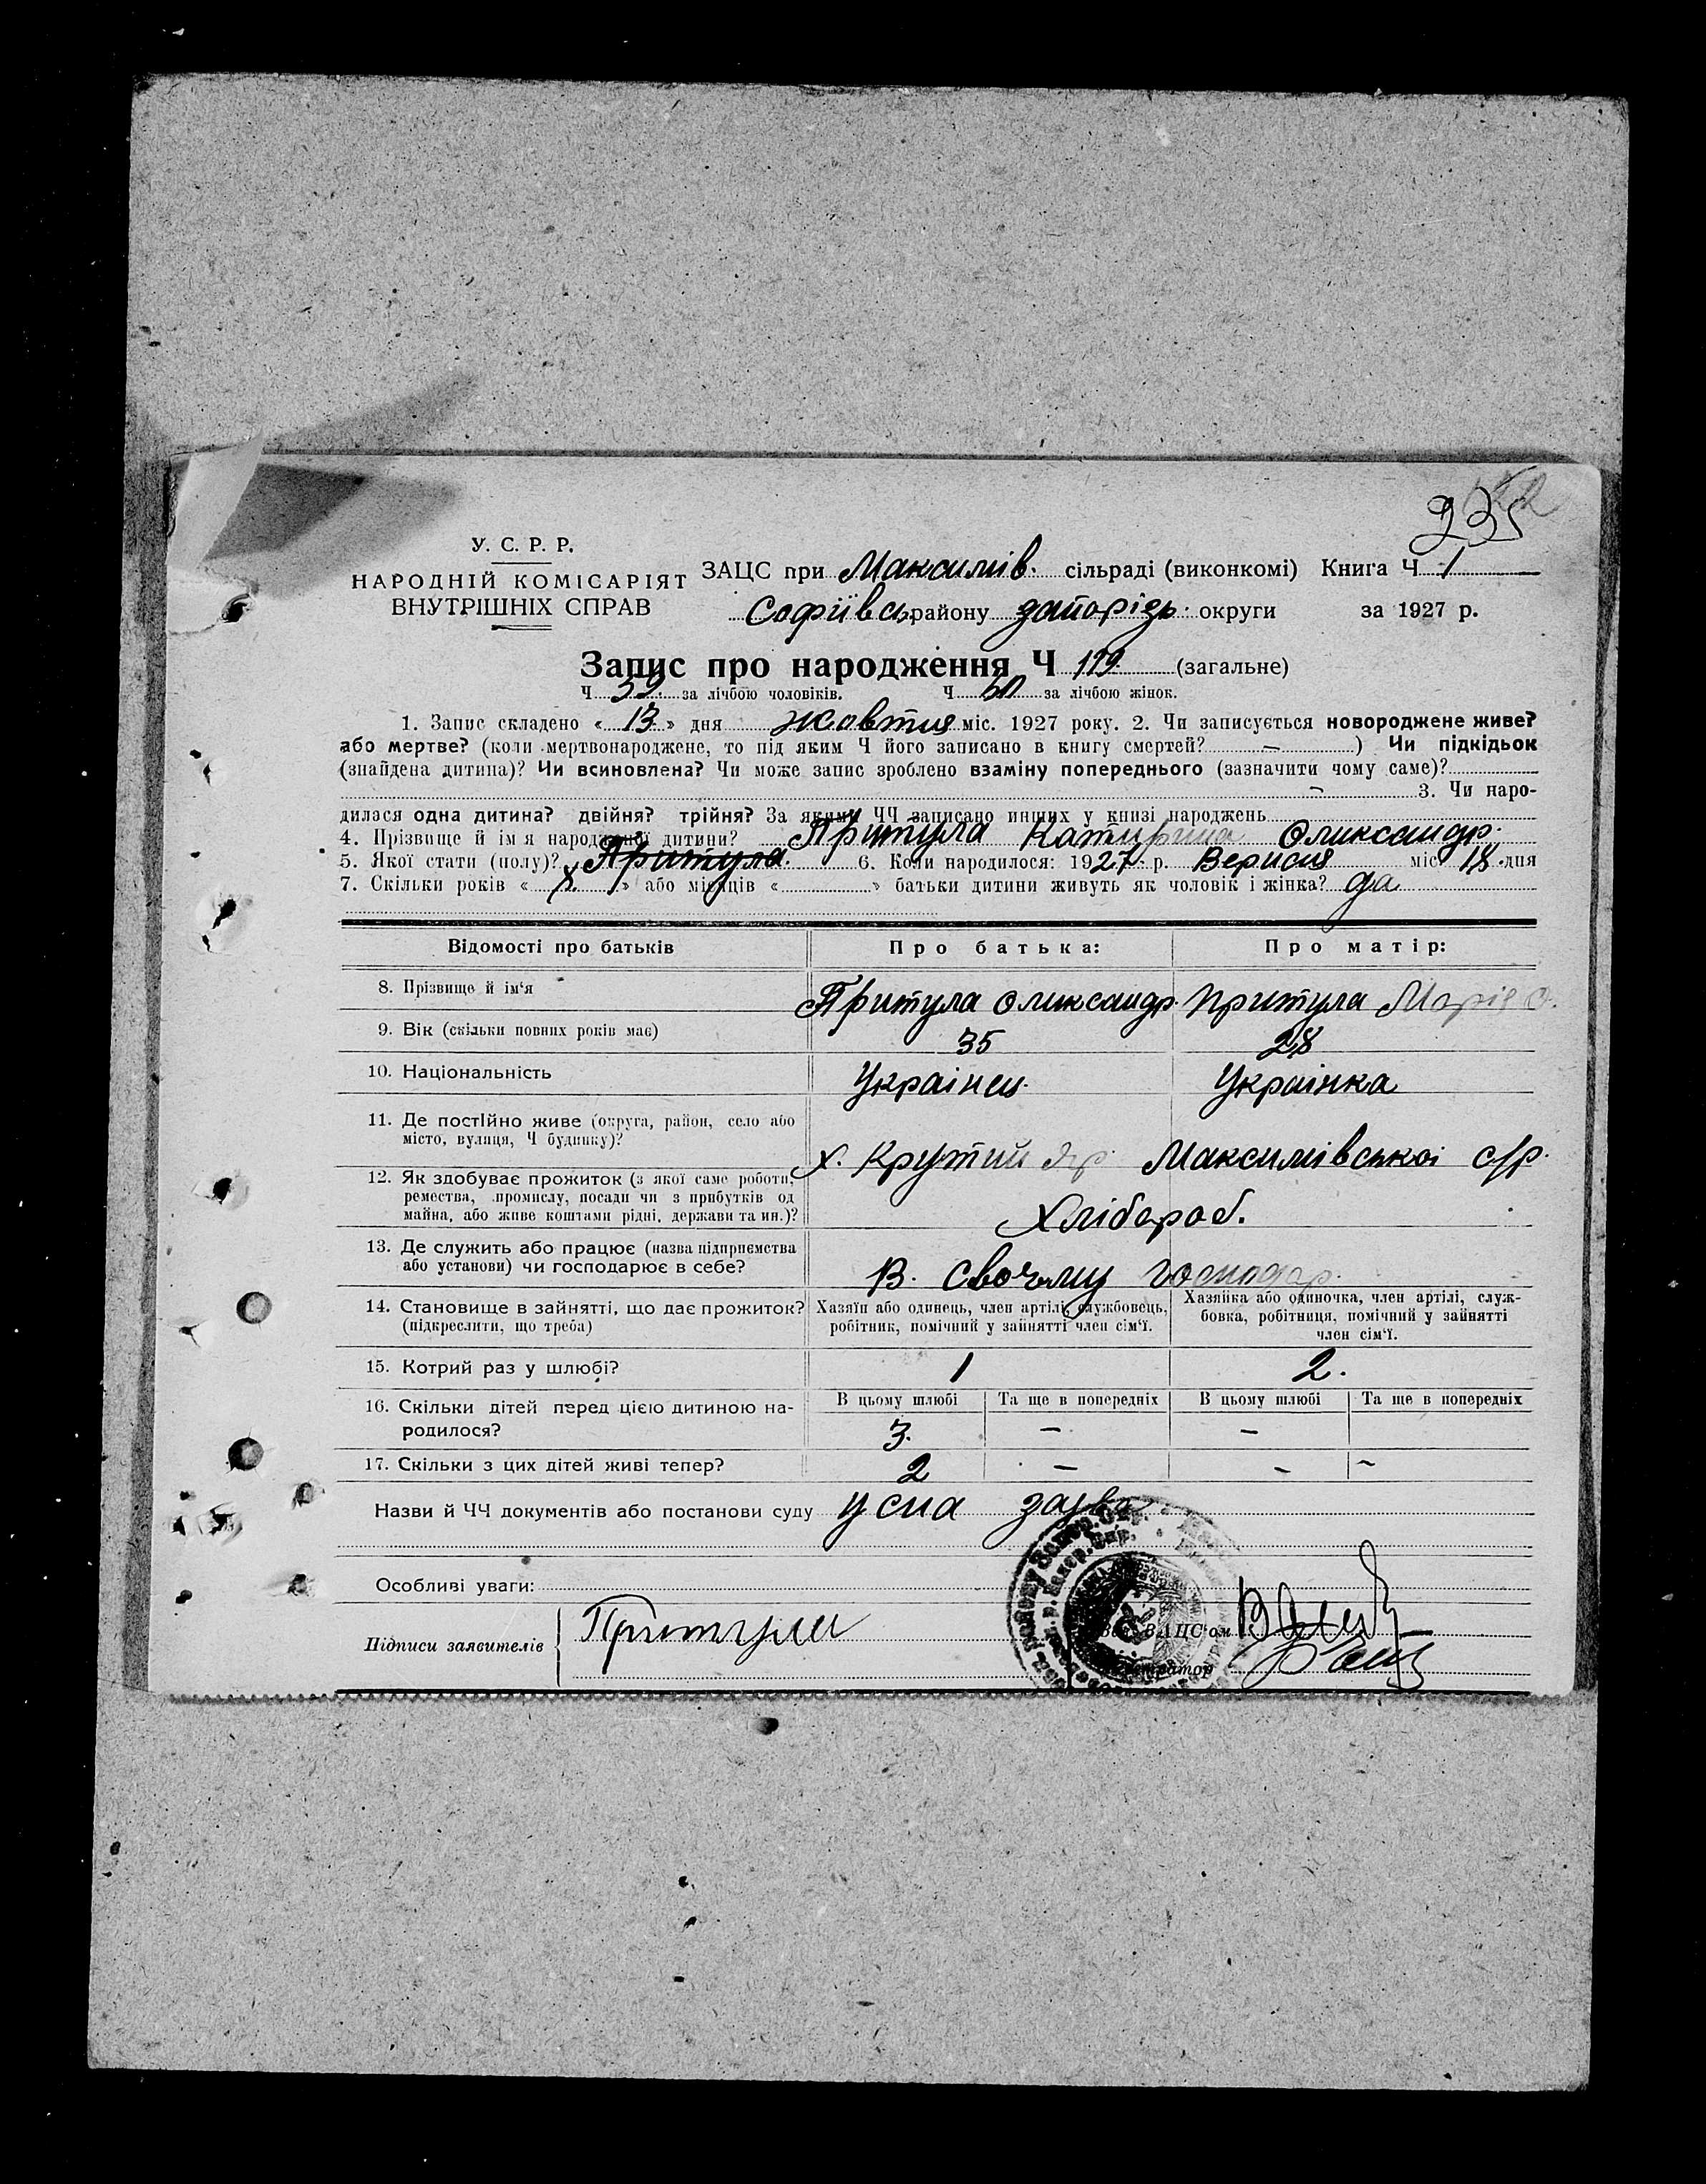 235
У. С. Р. Р.
НАРОДНІЙ КОМІСАРІЯТ
ВНУТРІШНІХ СПРАВ
ЗАЦС при Максимів. сільраді (виконкомі) Книга Ч 1
Софіївсь. району запорізь. округи за 1927 р.
Запис про народження Ч 119. (загальне)
Ч 59. за лічбою чоловіків. Ч 60 за лічбою жінок.
1. Запис складено « 13 » дня жовтня міс. 1927 року. 2. Чи записується новороджене живе?
або мертве? (коли мертвонароджене, то під яким Ч його записано в книгу смертей? – ) Чи підкідьок
(знайдена дитина)? Чи всиновлена? Чи може запис зроблено взаміну попереднього (зазначити чому саме)?
– 3. Чи наро-
дилася одна дитина? двійня? трійня? За якими ЧЧ записано инших у книзі народжень
4. Прізвище й ім'я народженої дитини? Притула Катирина Олександр.
5. Якої стати (полу)? Притула. 6. Коли народилося: 1927 р. Вересня міс. 18 дня
7. Скільки років « » або місяців « » батьки дитини живуть як чоловік і жінка? да
Відомості про батьків Про батька: Про матір:
8. Прізвище й ім'я Притула Олександр Притула Марія
9. Вік (скільки повних років має) 35 28
10. Національність Українец. Українка
11. Де постійно живе (округа, район, село або
місто, вулиця, Ч будинку)?
х. Крутий Яр. Максимівської с/р.
12. Як здобуває прожиток (з якої саме роботи,
ремества, промислу, посади чи з прибутків од
майна, або живе коштами рідні, держави та ин.)?
Хлібороб.
13. Де служить або працює (назва підприємства
або установи) чи господарює в себе?
В. своєму господар.
14. Становище в зайнятті, що дає прожиток?
(підкреслити, що треба)
Хазяїн або одинець, член артілі, службовець,
робітник, помічний у зайнятті член сім'ї.
Хазяйка або одиночка, член артілі, служ-
бовка, робітниця, помічний у зайнятті
член сім'ї.
15. Котрий раз у шлюбі? 1 2.
16. Скільки дітей перед цією дитиною на-
родилося?
В цьому шлюбі Та ще в попередніх В цьому шлюбі Та ще в попередніх
3. – –
17. Скільки з цих дітей живі тепер? 2 – – –
Назви й ЧЧ документів або постанови суду усна заява
Особливі уваги:
Підписи заявителів Притула
Зав. ЗАЦС'ом
Реєстратор